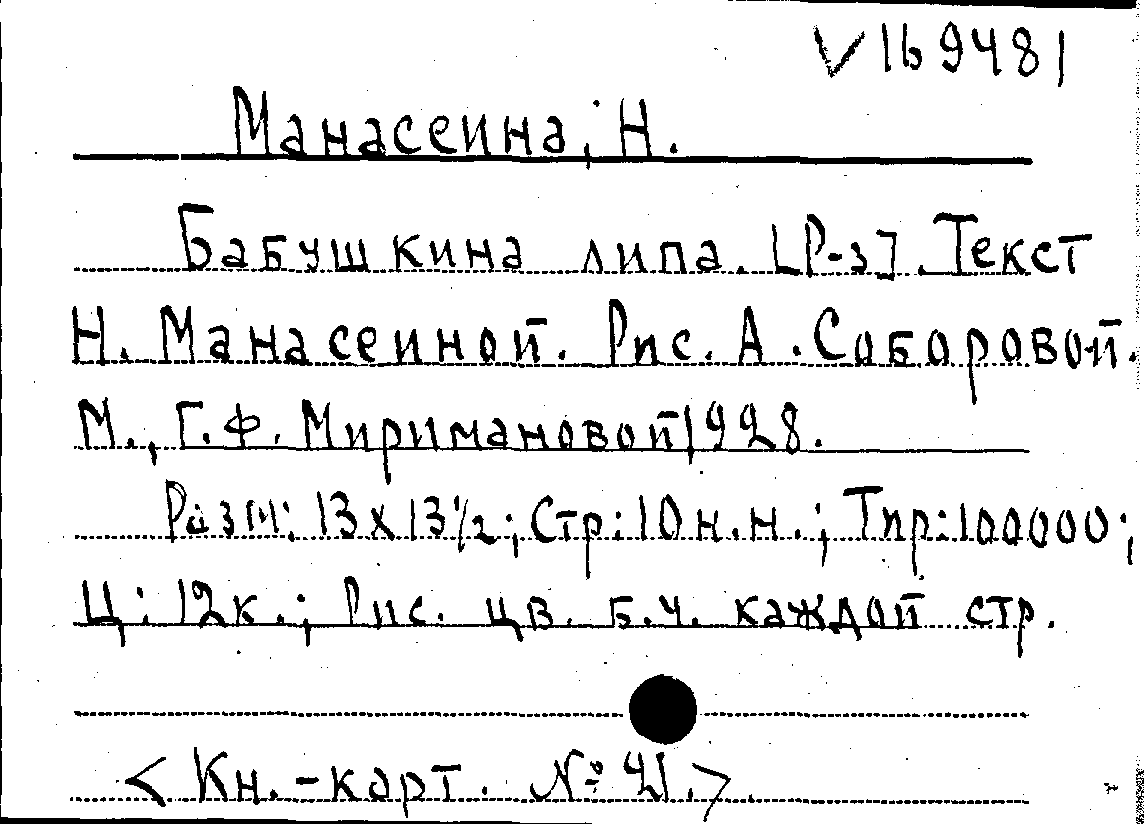 V 169481
Манасеина, Н.
Бабушкина липа. [Р-з]. Текст
Н. Манасеиной. Рис. А. Соборовой.
М., Г.Ф. Миримановой 1928.
Разм: 13х13½; Стр: 10 н.н.; Тир: 100000;
Ц: 12к.; Рис. цв. б.ч. каждой стр.
<Кн.-карт. № 21.>